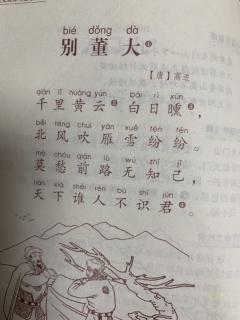 bié dǒng dà
别董大❶
【唐】高适
qiān lǐ huáng yún bái rì xūn
千里黄云❷白日曛❸，
běi fēng chuī yàn xuě fēn fēn
北风吹雁雪纷纷。
mò chóu qián lù wú zhī jǐ
莫愁前路无知己，
tiān xià shéi rén bù shí jūn
天下谁人不识君❹。